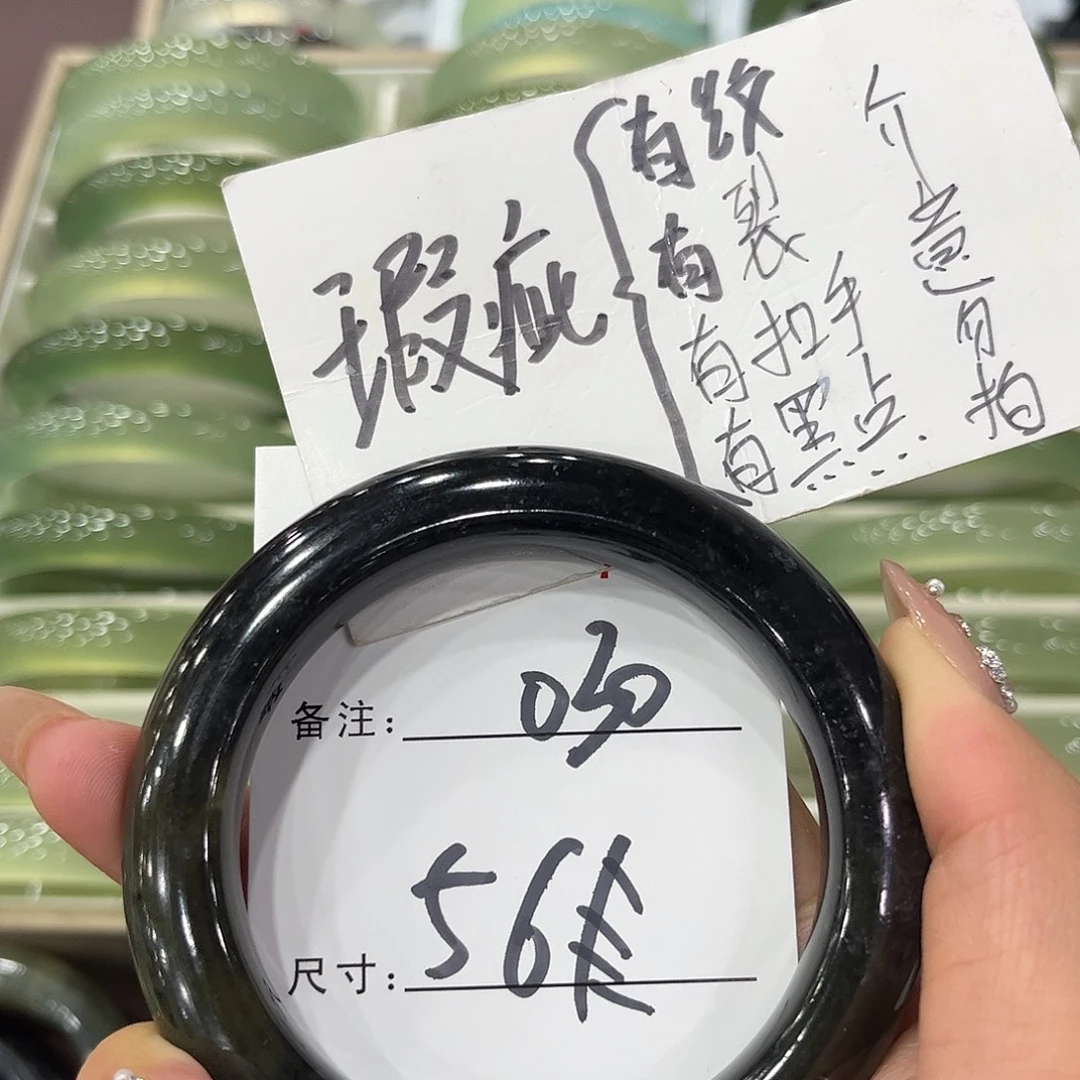 瑕疵
有纹
有裂
有扣手
有黑点.
介意勿拍
备注:
尺寸: 56